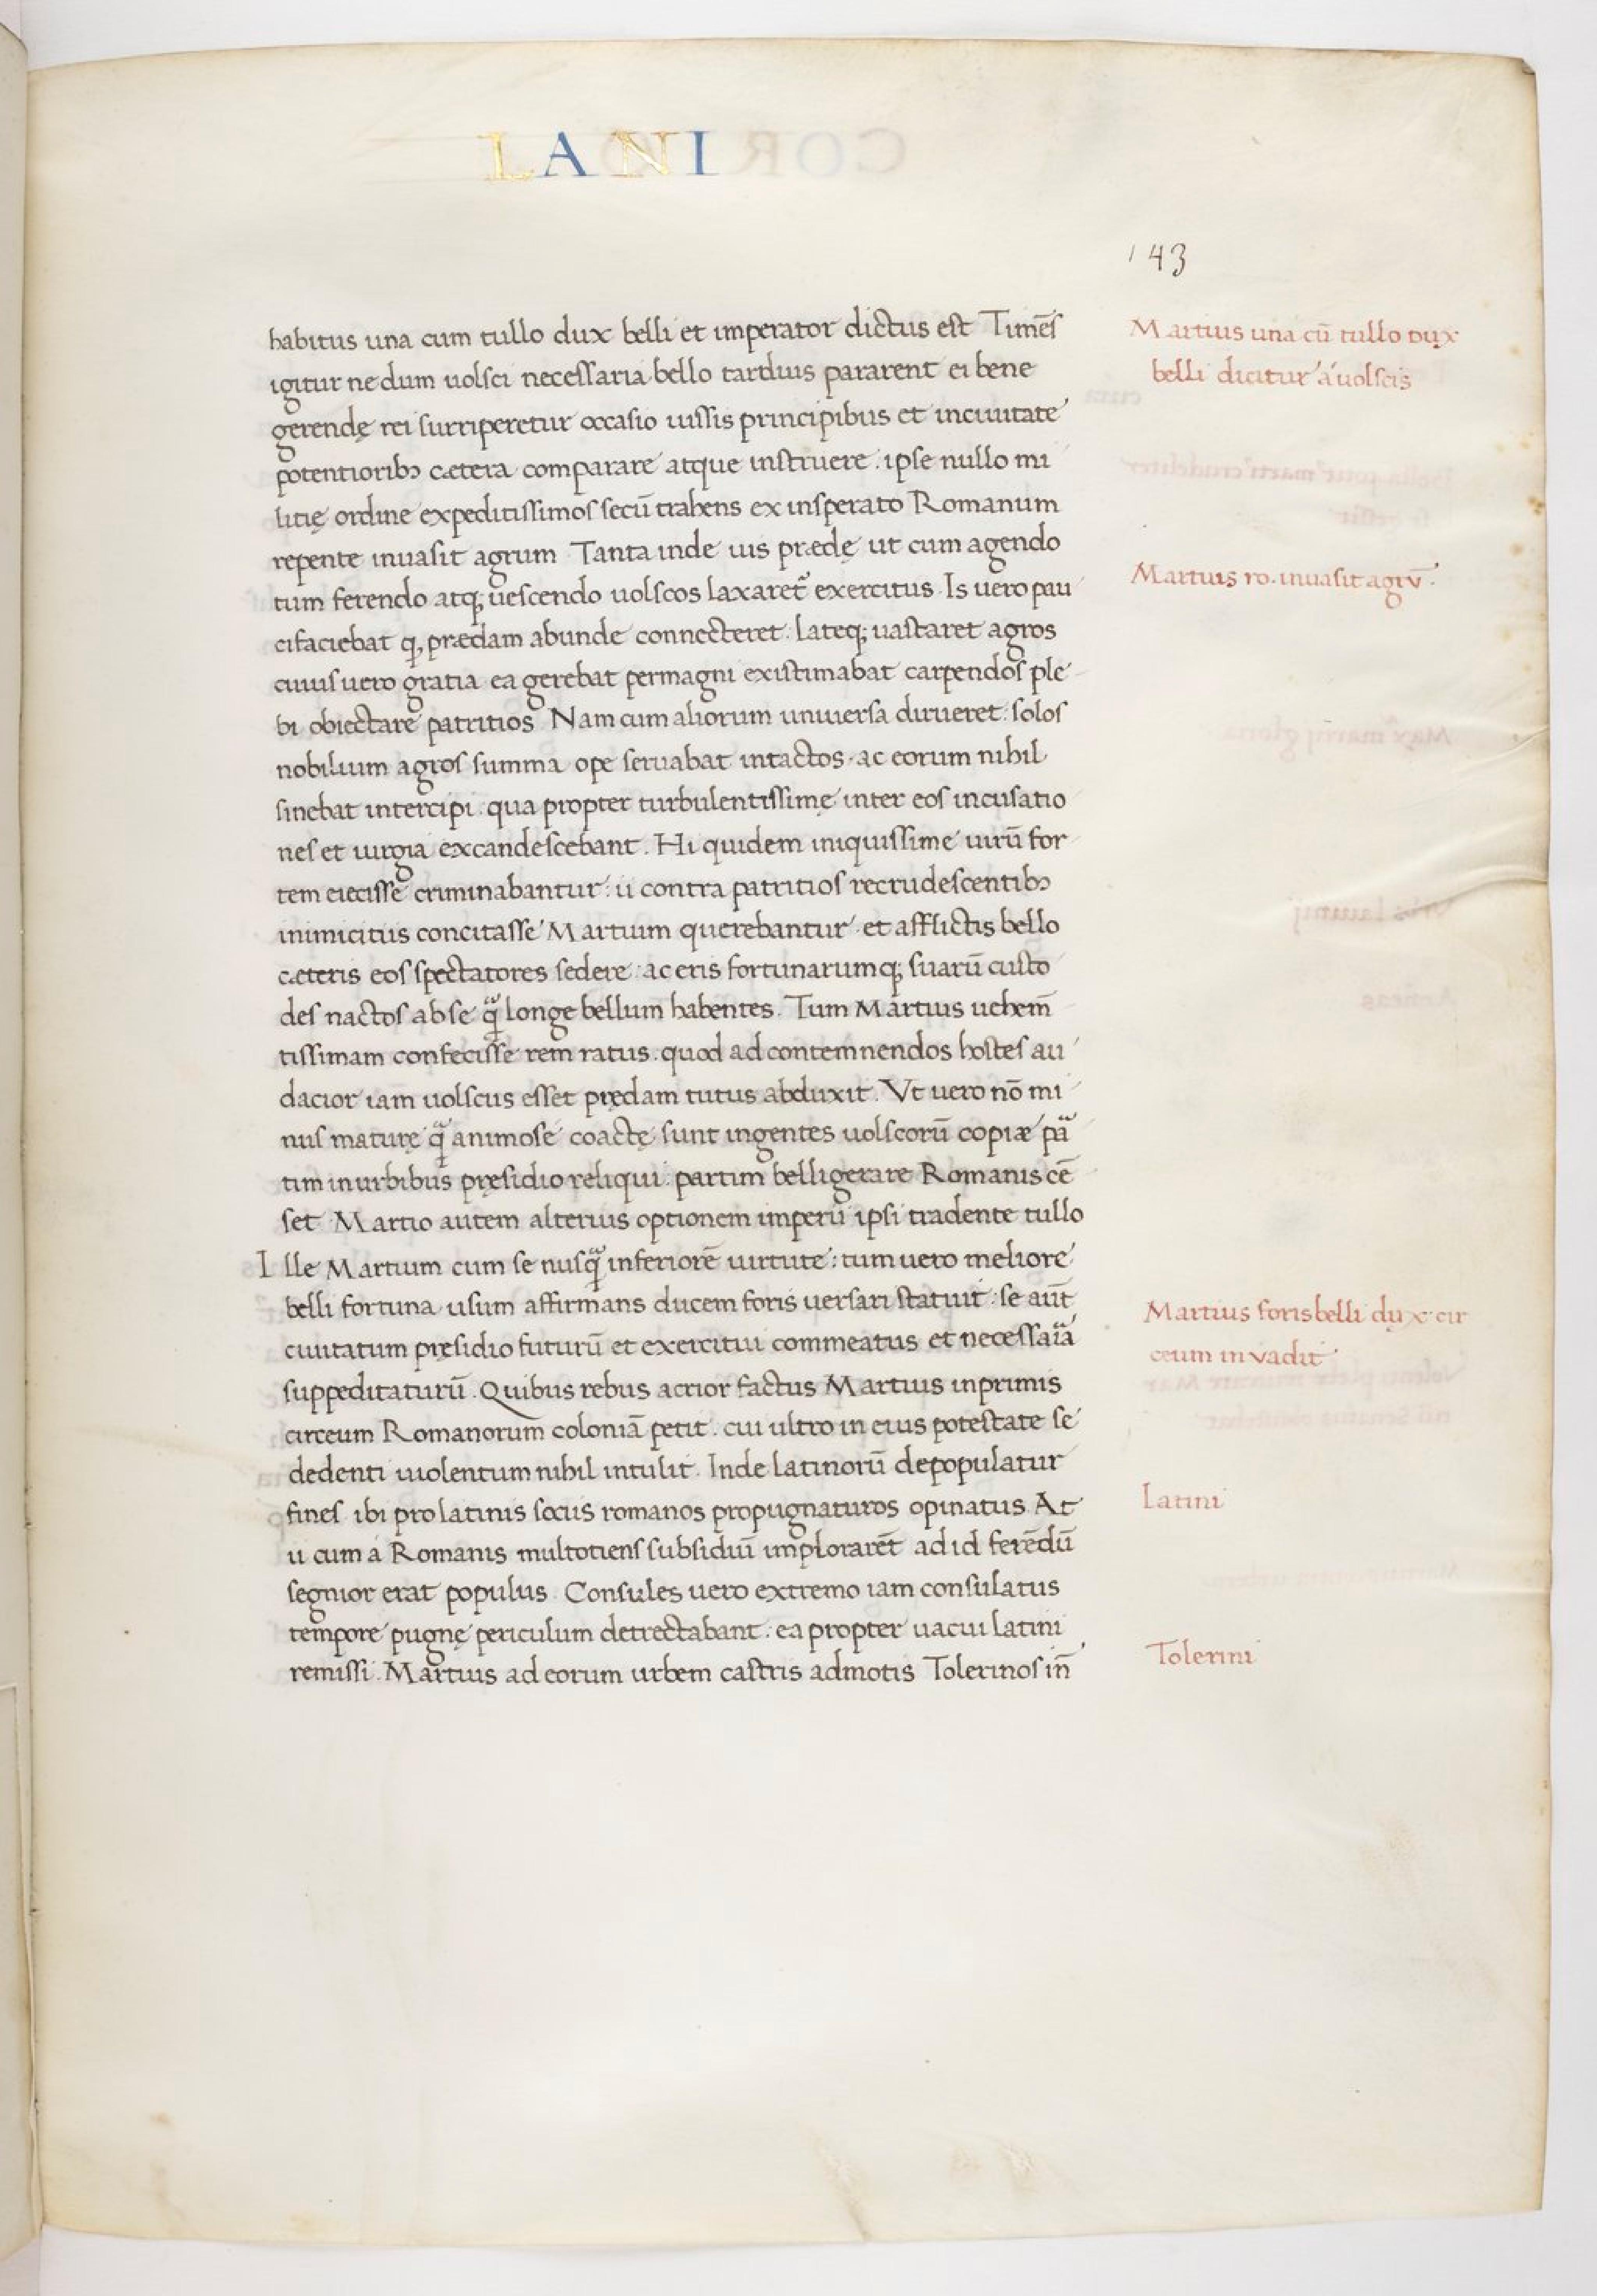 LANI
143
habitus una cum tullo dux belli et imperator dictus est Timēs
igitur ne dum uolsci necessaria bello tardius pararent ei bene
gerendę rei surriperetur occasio iussis principibus et inciuitate
potentioribꝫ cætera comparare atque instruere . ipse nullo mi
litię ordine expeditissimos secū trahens ex insperato Romanum
repente inuasit agrum . Tanta inde uis prædę ut cum agendo
tum ferendo atqꝫ uescendo uolscos laxaret exercitus . Is uero pau
cifaciebat ꝙ prædam abunde connecteret : lateqꝫ uastaret agros
cuius uero gratia ea gerebat permagni existimabat carpendos ple
bi obiectare patritios Nam cum aliorum uniuersa dirueret : solos
nobilium agros summa ope seruabat intactos . ac eorum nihil
sinebat intercipi . qua propter turbulentissimę inter eos incusatio
nes et iurgia excandescebant . Hi quidem iniquissime uirū for
tem eiecisse criminabantur : ii contra patritios recrudescentibꝫ
inimicitiis concitasse Martium querebantur . et afflictis bello
cæteris eos spectatores sedere : ac eris fortunarumqꝫ suarū custo
des nactos ab se q̃ longe bellum habentes . Tum Martius uehem̄
tissimam confecisse rem ratus . quod ad contemnendos hostes au
dacior iam uolscus esset prędam tutus abduxit . Vt uero nō mi
nus mature q̃ animose coactę sunt ingentes uolscorū copiæ pa
tim in urbibus pręsidio reliqui : partim belligerare Romanis cē
set Martio autem alterius optionem imperii ipsi tradente tullo
Ille Martium cum se nusq̃ inferiorē uirtute : tum uero meliore
belli fortuna usum affirmans ducem foris uersari statuit : se aūt
ciuitatum pręsidio futurū et exercitui commeatus et necessaia
suppeditaturū . Quibus rebus acrior factus Martius inprimis
circeum Romanorum coloniā petit . cui ultro in eius potestate se
dedenti uiolentum nihil intulit . Inde latinorū depopulatur
fines ibi pro latinis sociis romanos propugnaturos opinatus At
ii cum a Romanis multotiens subsidiū implorarēt ad id ferēdū
segnior erat populus . Consules uero extremo iam consulatus
tempore pugnę periculum detrectabant : ea propter uacui latini
remissi . Martius ad eorum urbem castris admotis Tolerinos in̄
Martius una cū tullo dux
belli dicitur a uolscis
Martius ro. inuasit agrv̄ .
Martius foris belli dux cir
ceum invadit
Latini
Tolerini